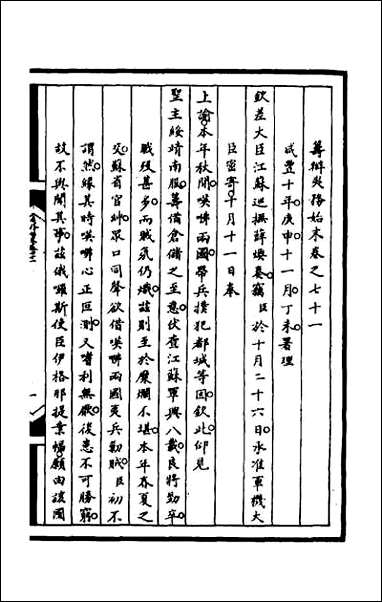 籌辦夷務始末卷之七十一
咸豐十年庚申十一月丁未署理
欽差大臣江蘇巡撫薛煥奏竊臣於十月二十六日承准軍機大
臣密寄十月十一日奉
上諭本年秋間㖸咈兩國帶兵撲犯都城等因欽此仰見
聖主綏靖南服籌備倉儲之至意伏查江蘇軍興八載良將勁卒
賊殘甚多而賊氛仍熾茲則至於糜爛不堪本年春夏之
交蘇省官紳眾口同聲欲借㖸咈兩國夷兵勦賊臣初不
謂然緣其時㖸咈心正叵測又嗜利無厭後患不可勝窮
故不與聞其事茲俄囉斯使臣伊格那提業幅願由該國